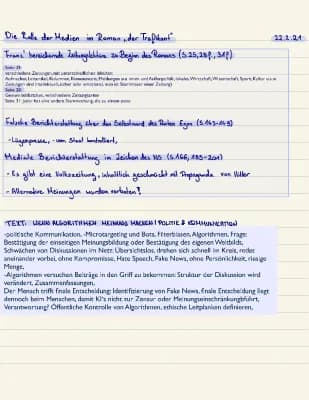 Die Rolle der Medien im Roman „der Trafikant"
22.2.21
Franz' bereichernde Zeitungslektüre zu Beginn des Romans (S.25,28f., 31f.)
Seite 25:
verschiedene Zeitungen mit unterschiedlichen
Aufmacher, Leitartikel, Kolumnen, Kommentare, Meldungen aus Innen und Außenpolitik, lokales, Wirtschaft, Wissenschaft, Sport, Kultur
Seite 28:
Gemeinsamkeiten, verschiedene Zeitungsarten
Seite 31: jeder hat eine andere
Falsche Berichterstattung über den Selbstmord des Roten Egon (S.143-149)
-Lügenpresse, -vom Staat kontrolliert,
Mediale Berichterstattung im Zeichen des NS (S.166, 199-201)
- Es gibt eine Volkszeitung, inhaltlich geschmückt mit Propaganda von Hitler
- Alternative Meinungen wurden verboten?
TEXT: WENN ALGORITHMEN MEINUNG MACHEN! POLITIK & KOMMUNIKATION
-politische Kommunikation, -Microtargeting und Bots, Filterblasen, Algorithmen, Frage:
Bestätigung der einseitigen Meinungsbildung oder Bestätigung des eigenen Weltbilds,
Schwächen von Diskussionen im Nett: Übersichtslos, drehen sich schnell im Kreis, redet
aneinander vorbei, ohne Kompromisse, Hate Speech, Fake News, ohne Persönlichkeit, riesige
Menge,
-Algorithmen versuchen Beiträge in den Griff zu bekommen: Struktur der Diskussion wird
verändert, Zusammenfassungen,
Der Mensch trifft finale Entscheidung: Identifizierung von Fake News, finale Entscheidung liegt
dennoch beim Menschen, damit KI's nicht zur Zensur oder Meinungseinschränkung führt,
Verantwortung? Öffentliche Kontrolle von Algorithmen, ethische Leitplanken definieren,